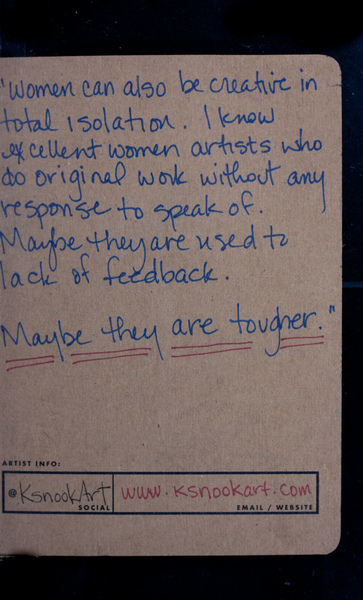 "Women can also be creative in
total isolation. I know
excellent women artists who
do original work without any
response to speak of.
Maybe they are used to
lack of feedback.
Maybe they are tougher."
ARTIST INFO:
@KsnookArt
SOCIAL
www.ksnookart.com
EMAIL / WEBSITE